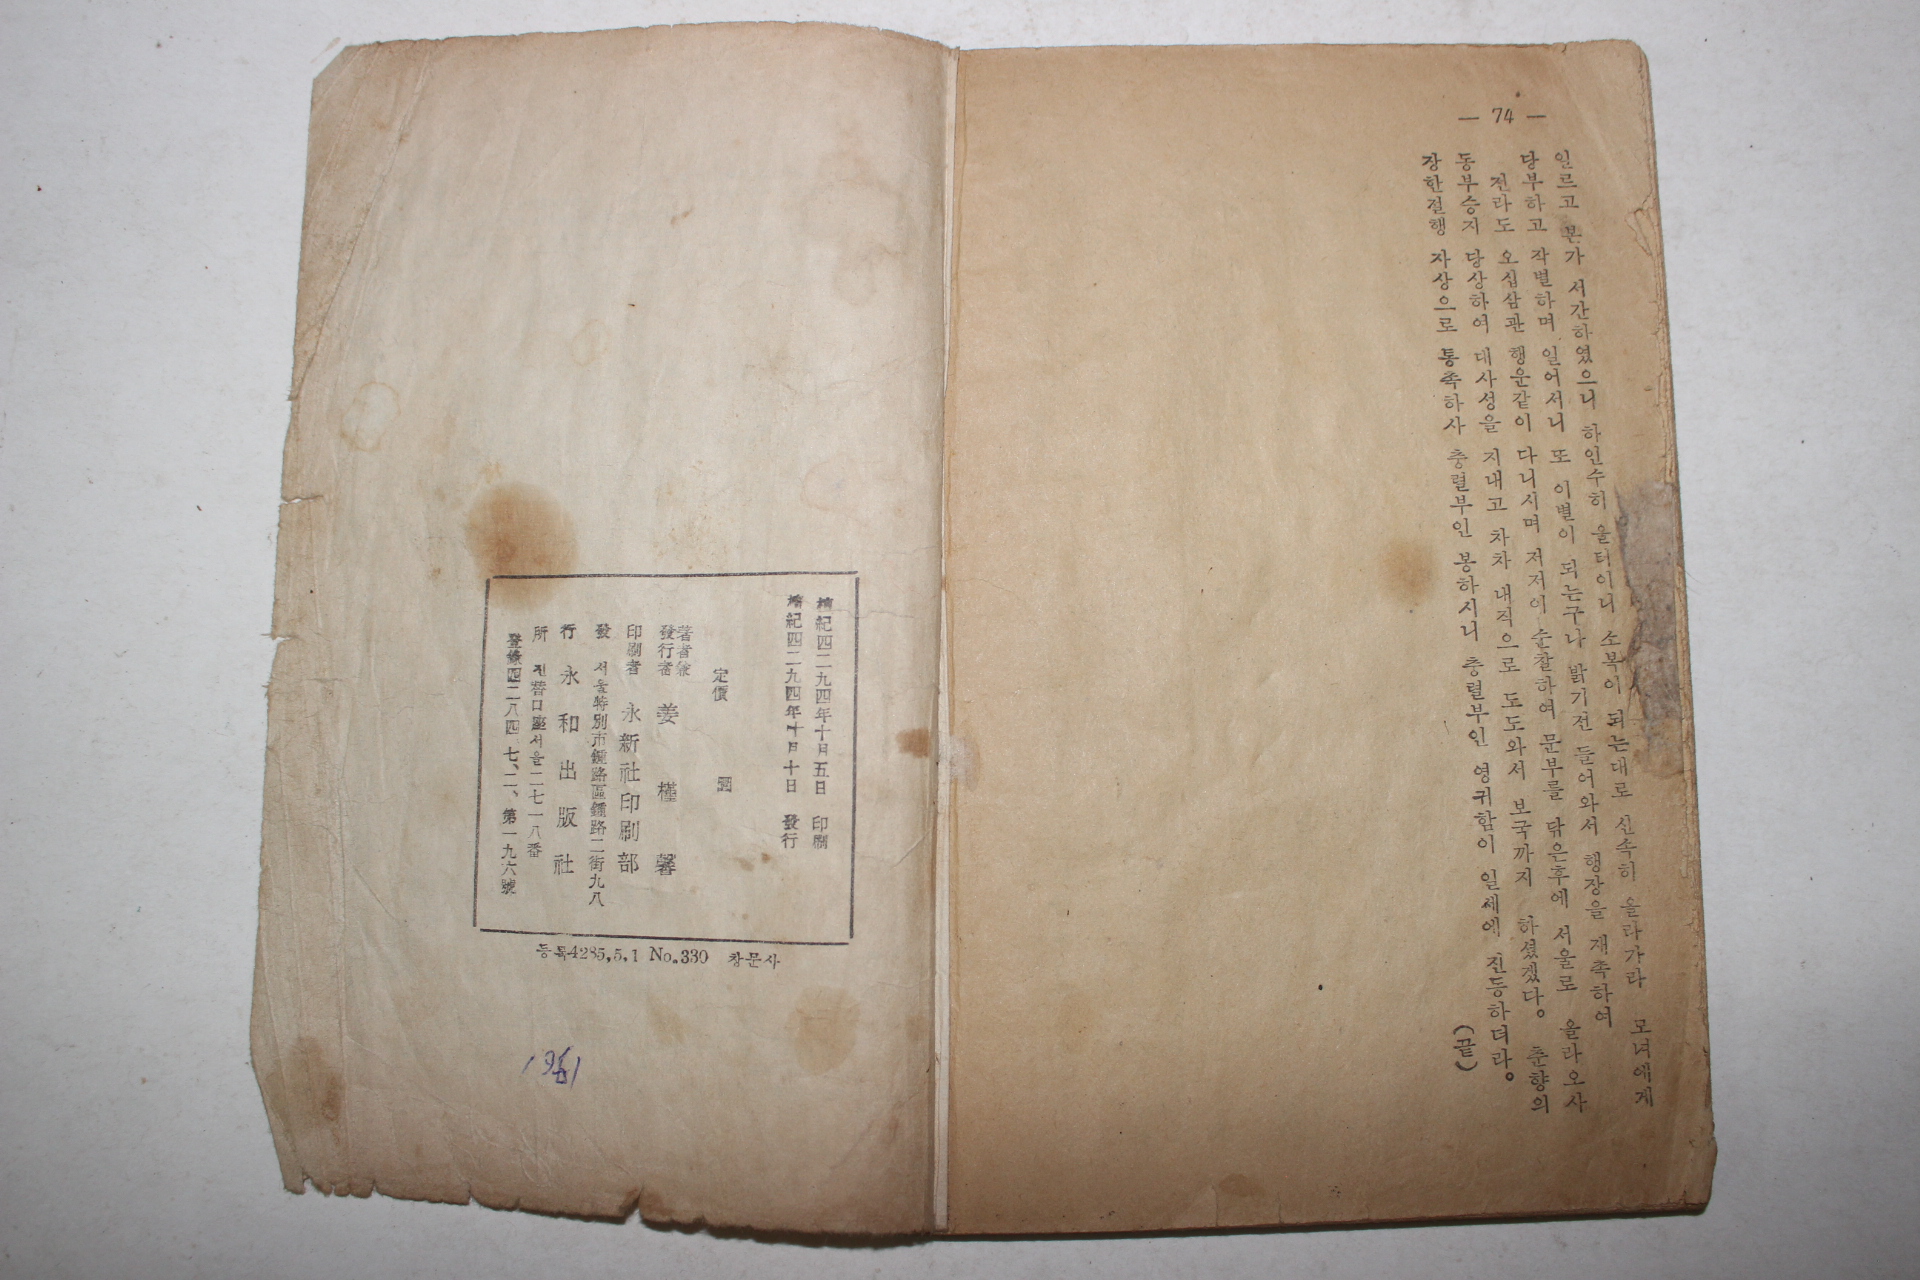 — 74 —
일르고 본가 서간하였으니 하인수히 올터이니 소복이 되는대로 신속히 올라가라 모녀에게
당부하고 작별하며 일어서니 또 이별이 되는구나 밝기전 들어와서 행장을 재촉하여
전라도 오십삼관 행운같이 다니시며 저저이 순찰하여 문부를 닦은후에 서울로 올라오사
동부승지 당상하여 대사성을 지내고 차차 내직으로 도도와서 보국까지 하셨겠다。 춘향의
장한절행 자상으로 통촉하사 충렬부인 봉하시니 충렬부인 영귀함이 일세에 진등하더라。
(끝)
檀紀四二九四年十月五日 印刷
檀紀四二九四年十月十日 發行
定價 圜
著者兼
發行者 姜槿馨
印刷者 永新社印刷部
發 서울特別市鍾路區鍾路二街九八
行 永和出版社
所 진替口座서울二七一八番
登錄四二八四、七、二、第一九六號
등록4285,5,1 No.330 창문사
1961